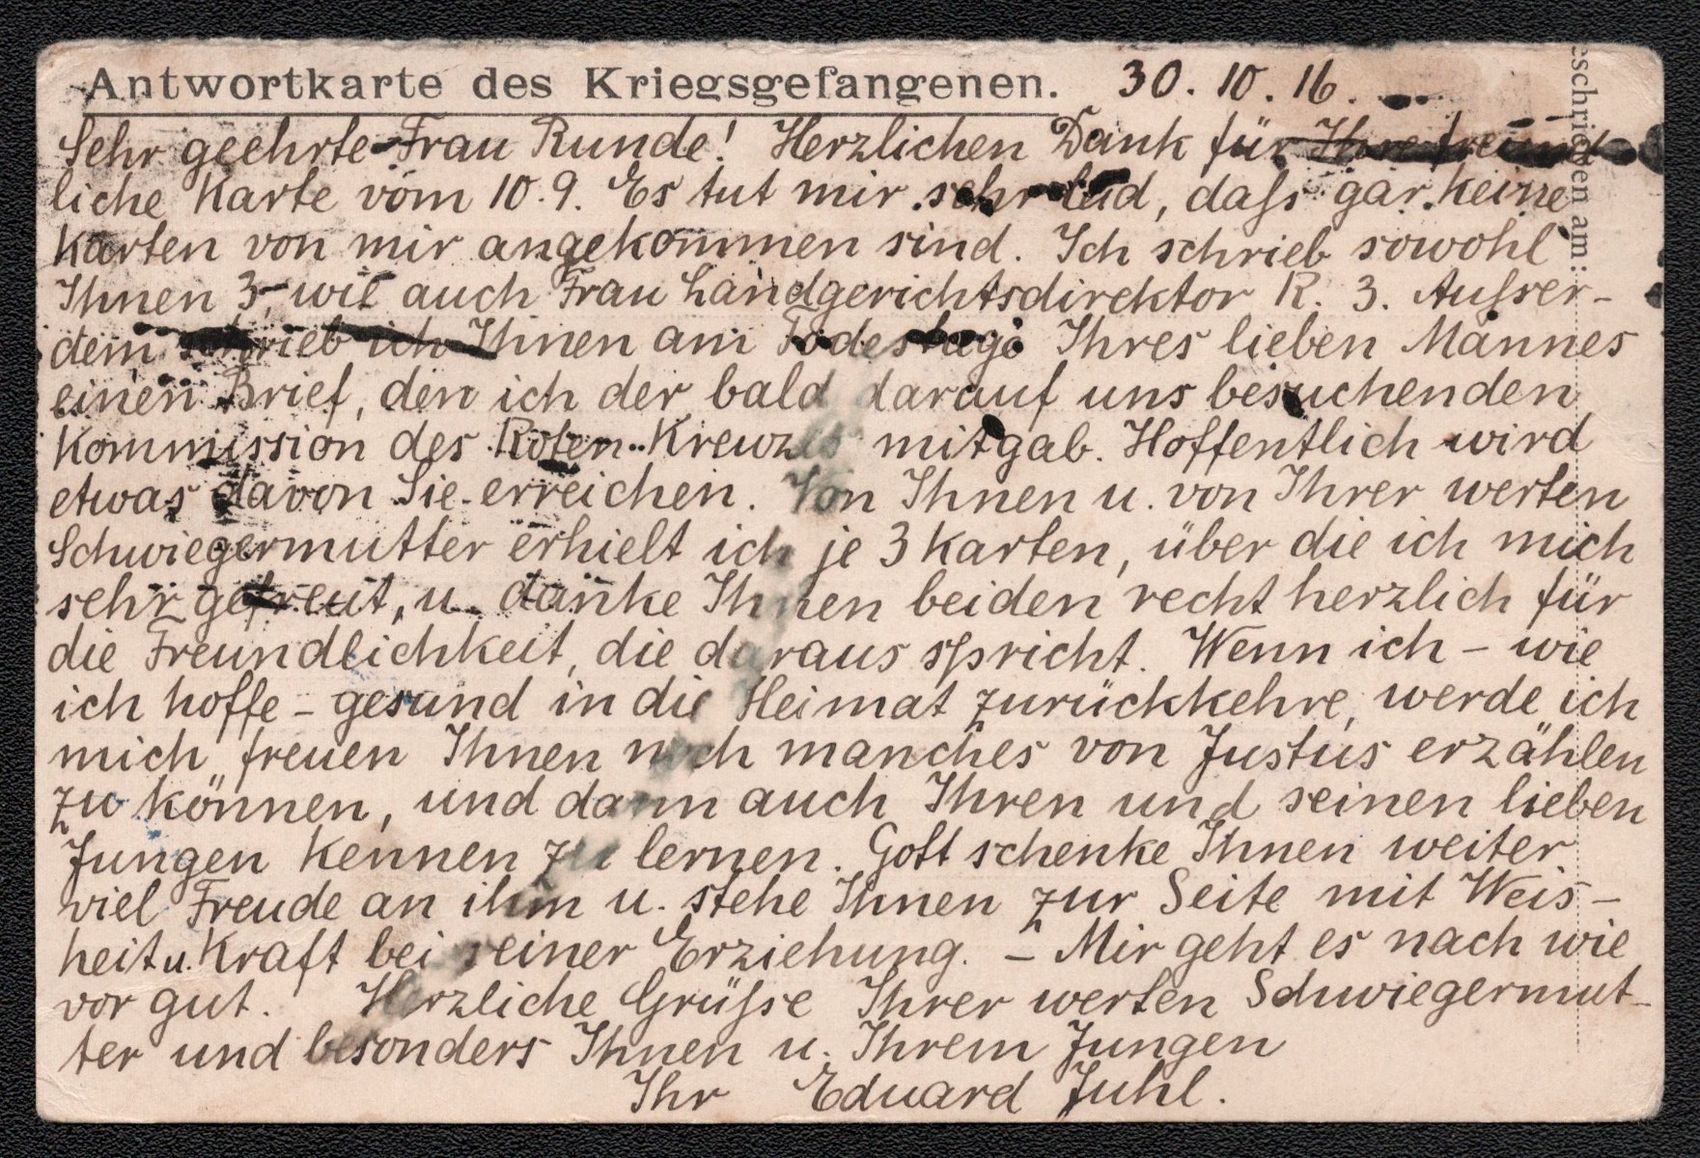 Antwortkarte des Kriegsgefangenen. 30. 10. 16.
Sehr geehrte Frau Runde! Herzlichen Dank für Ihre freund-
liche Karte vom 10. 9. Es tut mir sehr leid, daſs gar keine
Karten von mir angekommen sind. Ich schrieb sowohl
Ihnen 3, wie auch Frau Landgerichtsdirektor R. 3. Auſser-
dem schrieb ich Ihnen am Todestage Ihres lieben Mannes
einen Brief, den ich der bald darauf uns besuchenden
Kommission des Roten Kreuzes mitgab. Hoffentlich wird
etwas davon Sie erreichen. Von Ihnen u. von Ihrer werten
Schwiegermutter erhielt ich je 3 Karten, über die ich mich
sehr gefreut, u. danke Ihnen beiden recht herzlich für
die Freundlichkeit, die daraus spricht. Wenn ich – wie
ich hoffe – gesund in die Heimat zurückkehre, werde ich
mich freuen Ihnen noch manches von Justus erzählen
zu können, und dann auch Ihren und seinen lieben
Jungen kennen zu lernen. Gott schenke Ihnen weiter
viel Freude an ihm u. stehe Ihnen zur Seite mit Weis-
heit u. Kraft bei seiner Erziehung. – Mir geht es nach wie
vor gut. Herzliche Grüſse Ihrer werten Schwiegermut-
ter und besonders Ihnen u. Ihrem Jungen
Ihr Eduard Juhl.
eschrieben am: